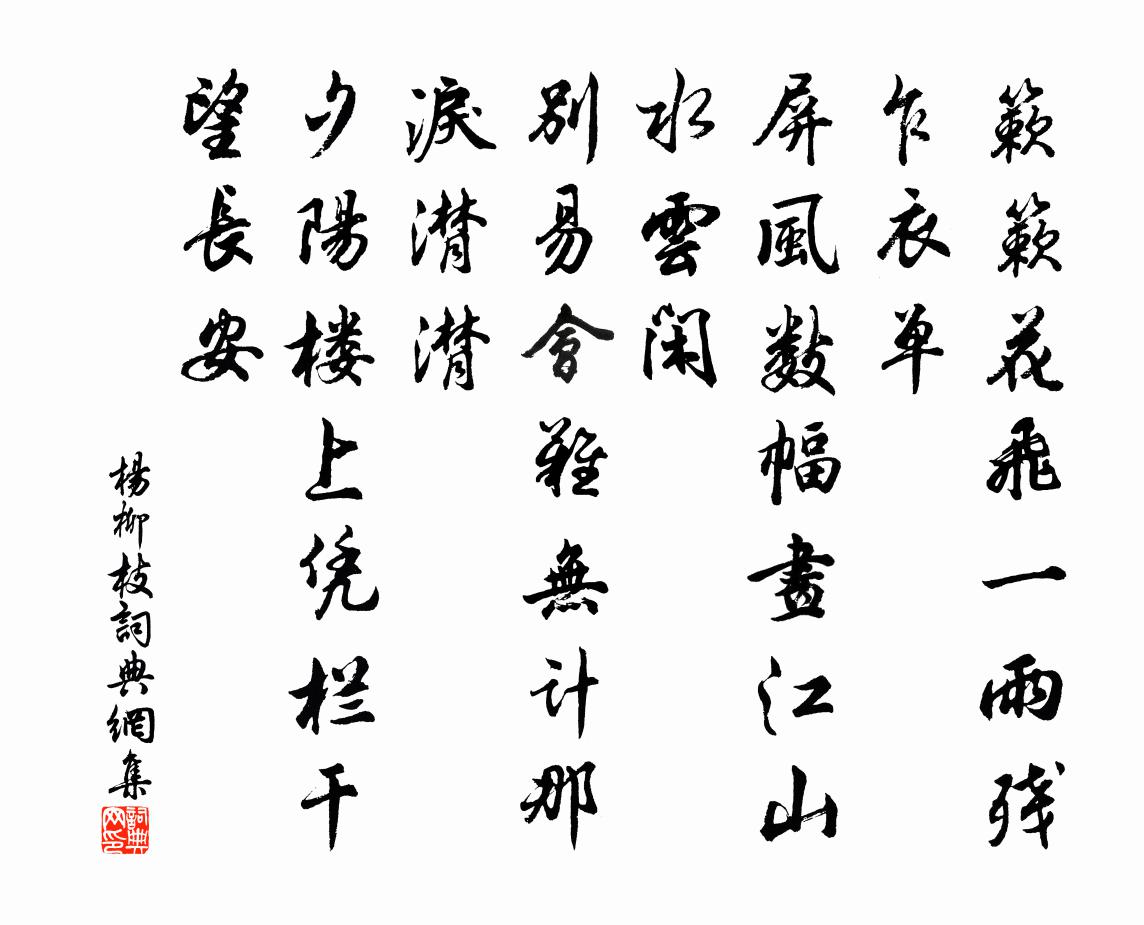 簌簌花飛一雨残
乍衣单
屏風数幅畫江山
水雲闲
別易會難無计那
淚潸潸
夕陽楼上凭栏干
望長安
楊柳枝詞典網集
詞典网印